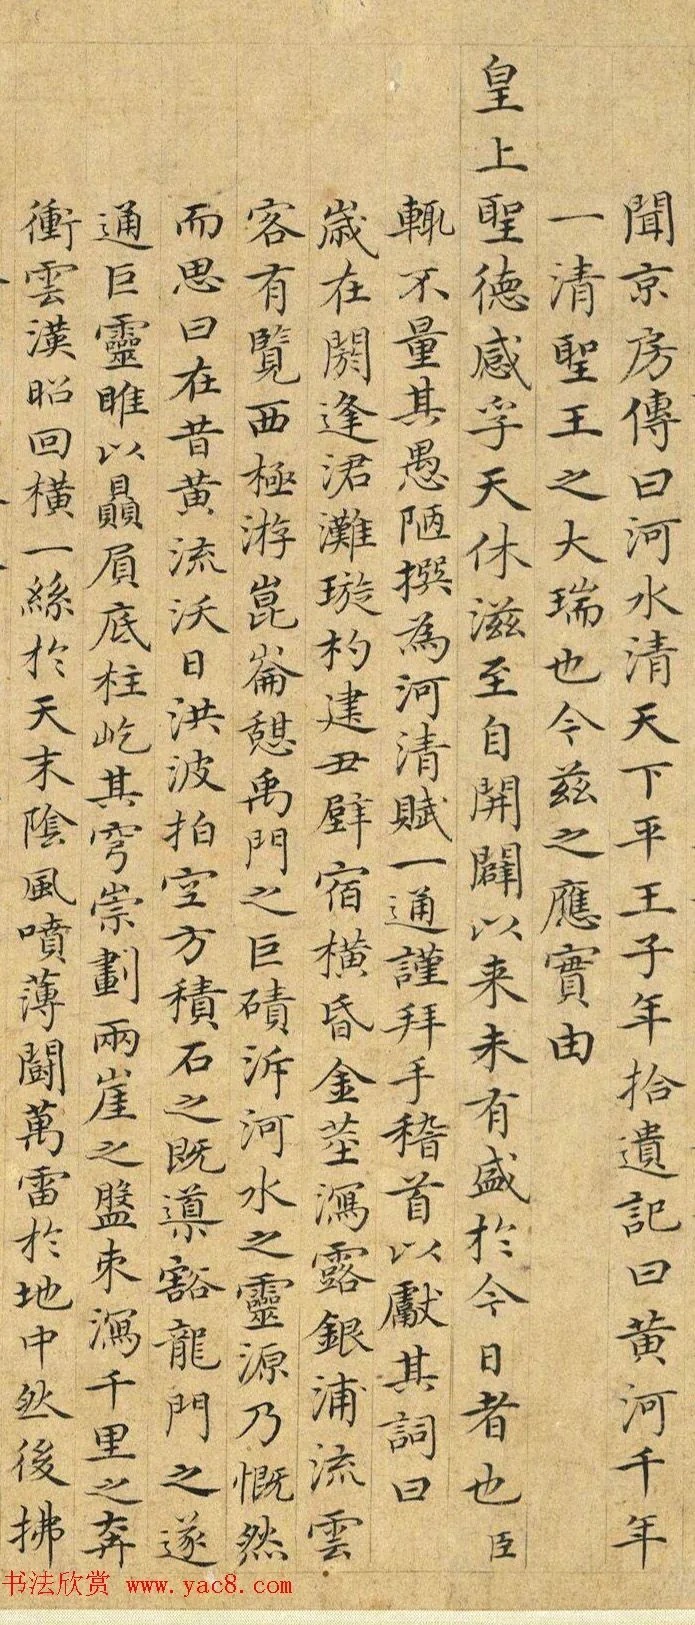 聞京房傳曰河水清天下平王子年拾遺記曰黄河千年
一清聖王之大瑞也今茲之應實由
皇上聖德感孚天休滋至自開闢以来未有盛於今日者也臣
輒不量其愚陋撰為河清賦一通謹拜手稽首以獻其詞曰
歳在閼逢涒灘璇杓建丑壁宿横昏金莖瀉露銀浦流雲
客有覧西極游崑崙憇禹門之巨磧泝河水之靈源乃慨然
而思曰在昔黄流沃日洪波拍空方積石之既導豁龍門之遂
通巨靈睢以贔屓底柱屹其穹崇劃兩崖之盤束瀉千里之奔
衝雲漢昭回横一絲於天末陰風噴薄闘萬雷於地中然後拂
书法欣赏 www.yac8.com